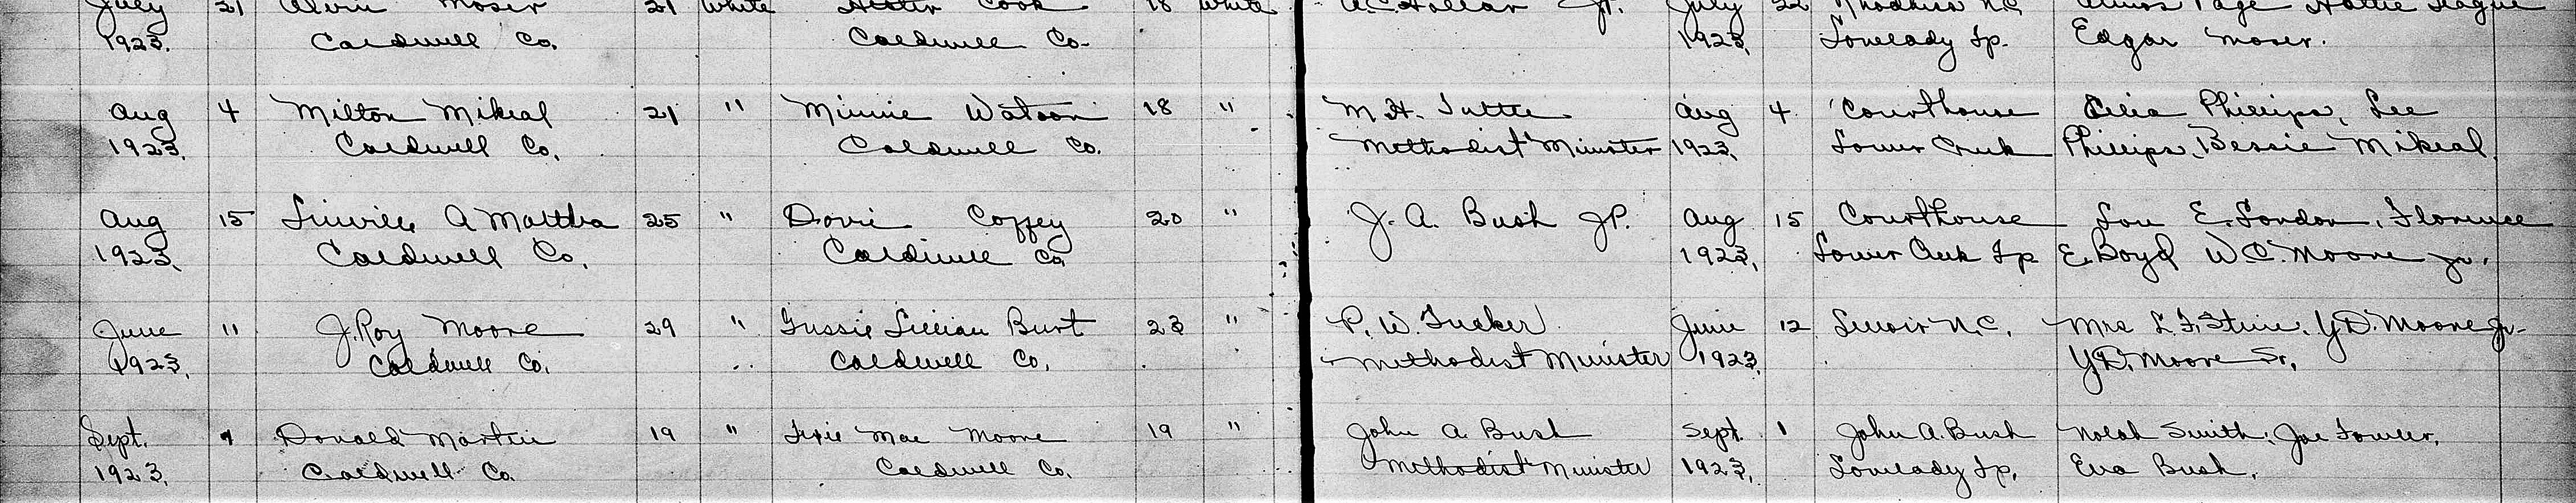 July 21 Alvin Moser 21 White Hester Cook 18 White A.C. Hollar J.P. July 22 Rhodhiss N.C. Page Hattie Teague
1923. Caldwell Co. Caldwell Co. 1923. Lovelady Tp. Edgar Moser.
Aug 4 Milton Mikeal 21 " Minnie Watson 18 " M.H. Tuttle Aug 4 Courthouse Celia Phillips, Lee
1923. Caldwell Co. Caldwell Co. Methodist Minister 1923. Lower Creek Phillips, Bessie Mikeal.
Aug 15 Linville A Maltba 25 " Dovie Coffey 20 " J. A. Bush JP. Aug 15 Courthouse Lou E. London, Florence
1923. Caldwell Co. Caldwell Co 1923. Lower Creek Tp E. Boyd W.C. Moore Jr.
June 11 J. Roy Moore 29 " Gussie Lillian Burt 23 " P. W. Tucker June 12 Lenoir N.C. Mrs L. F. Stine, Y.D. Moore Jr.
1923. Caldwell Co. " Caldwell Co. Methodist Minister 1923. Y.D. Moore Sr.
Sept. 1 Donald Martin 19 " Mae Moore 19 " John A. Bush Sept. 1 John A. Bush Nolah Smith, Joe Fowler,
1923. Caldwell Co. Caldwell Co. Methodist Minister 1923. Lovelady Tp. Eva Bush.